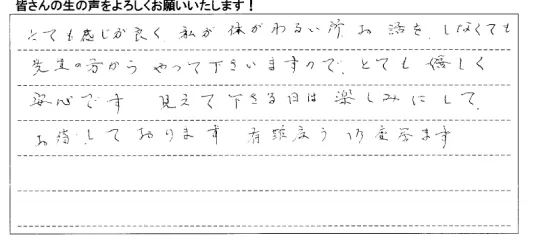 皆さんの生の声をよろしくお願いいたします！
とても感じが良く、私が体がわるい所お話を、しなくても
先生の方からやって下さいますので、とても優しく
安心です 見えて下さる日は楽しみにして、
お待しております 有難う御座居ます